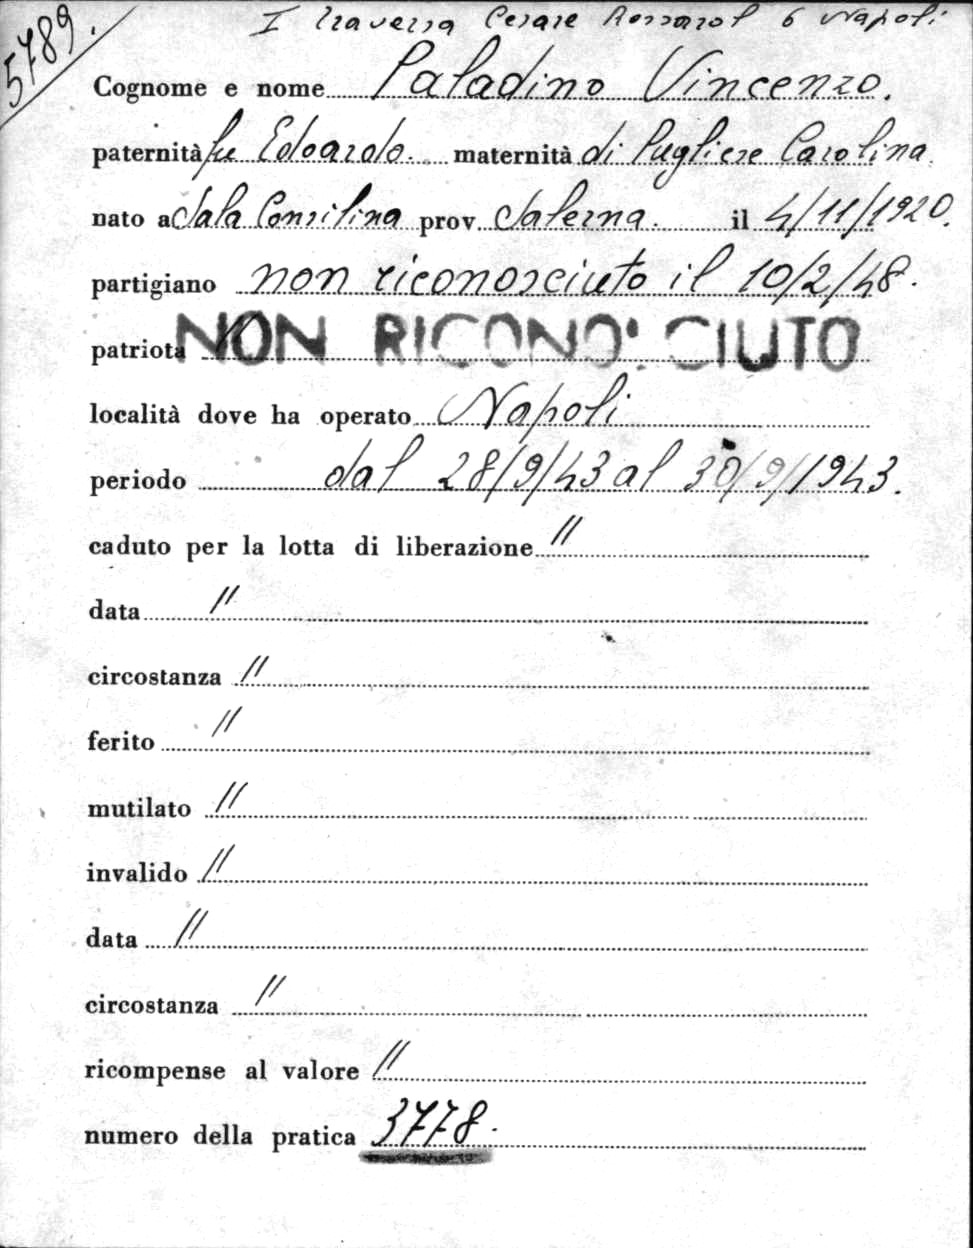 5789.
I traversa Cesare Rossarol 6 Napoli
Cognome e nome Paladino Vincenzo.
paternità fu Edoardo. maternità di Pugliese Carolina.
nato a Sala Consilina prov. Salerna. il 4/11/1920.
partigiano non riconosciuto il 10/2/48.
patriota " NON RICONOSCIUTO
località dove ha operato Napoli
periodo dal 28/9/43 al 30/9/1943.
caduto per la lotta di liberazione "
data "
circostanza "
ferito "
mutilato "
invalido "
data "
circostanza "
ricompense al valore "
numero della pratica 3778.